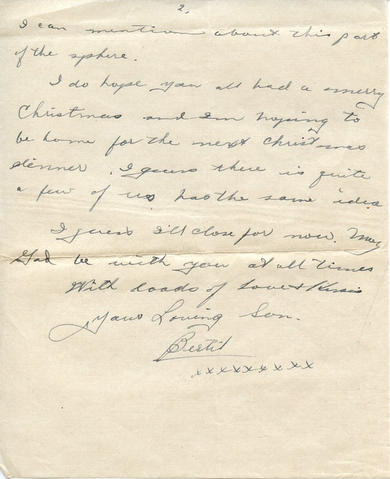 2.
I can mention about this part
of the sphere.
I do hope you all had a merry
Christmas and I'm hoping to
be home for the next Christmas
dinner. I guess there is quite
a few of us has the same idea
I guess I'll close for now. May
God be with you at all times
With loads of Love & Kisses
Your Loving Son.
Bertil
xxxxxxxxx